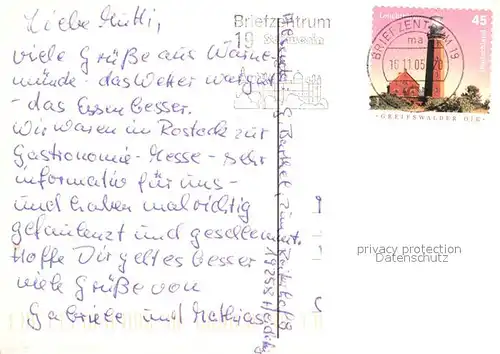 Liebe Mutti,
viele Grüße aus Warne-
münde - das Wetter war gut
- das Essen besser.
Wir waren in Rostock zur
Gastronomie-Messe - sehr
informativ für uns -
und haben mal richtig
gefaulenzt und geschlemmt.
Hoffe Dir geht es besser
viele Grüße von
Gabriele und Mathias
Briefzentrum
19 Schwerin
BRIEFZENTRUM 19
ma
16.11.05-20
45
Deutschland
-GREIFSWALDER OIE-
privacy protection
Datenschutz